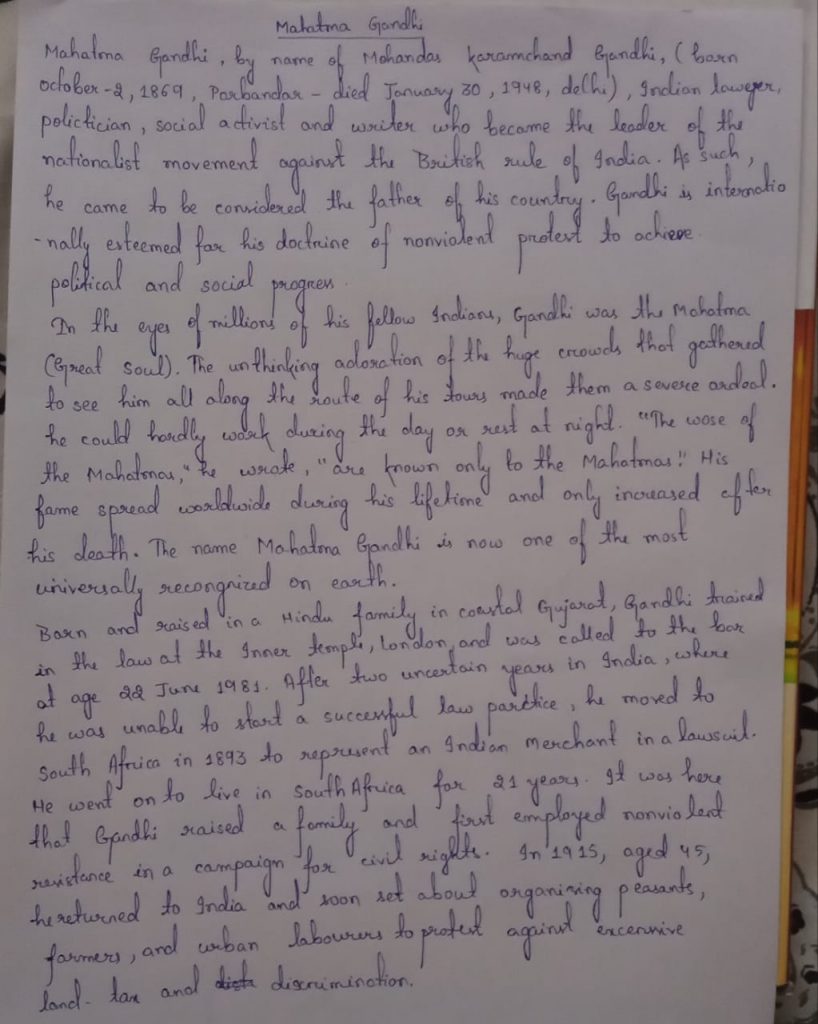 Mahatma Gandhi
Mahatma Gandhi, by name of Mohandas Karamchand Gandhi, (born
october-2, 1869, Parbandar - died January 30, 1948, delhi), Indian lawyer,
polictician, social activist and writer who became the leader of the
nationalist movement against the British rule of India. As such,
he came to be considered the father of his country. Gandhi is internatio
-nally esteemed for his doctrine of nonviolent protest to achieve
political and social progress.
In the eyes of millions of his fellow Indians, Gandhi was the Mahatma
(Great soul). The unthinking adoration of the huge crowds that gathered
to see him all along the route of his tours made them a severe ordeal.
he could hardly work during the day or rest at night. "The wose of
the Mahatmas," he wrote, "are known only to the Mahatmas." His
fame spread worldwide during his lifetime and only increased after
his death. The name Mahatma Gandhi is now one of the most
universally recongnized on earth.
Born and raised in a Hindu family in coastal Gujarat, Gandhi trained
in the law at the Inner temple, London, and was called to the bar
at age 22 June 1981. After two uncertain years in India, where
he was unable to start a successful law parctice, he moved to
South Africa in 1893 to represent an Indian merchant in a lawsuit.
He went on to live in South Africa for 21 years. It was here
that Gandhi raised a family and first employed nonviolent
resistance in a campaign for civil rights. In 1915, aged 45,
he returned to India and soon set about organizing peasants,
farmers, and urban labourers to protest against excessive
land-tax and discrimination.